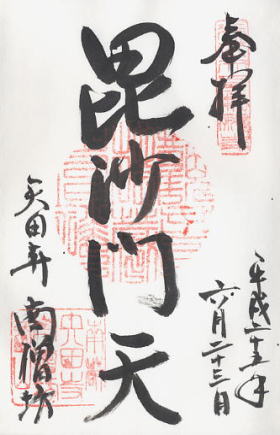 奉拝
平成二十五年
六月二十三日
毘沙門天
矢田寺
南僧坊